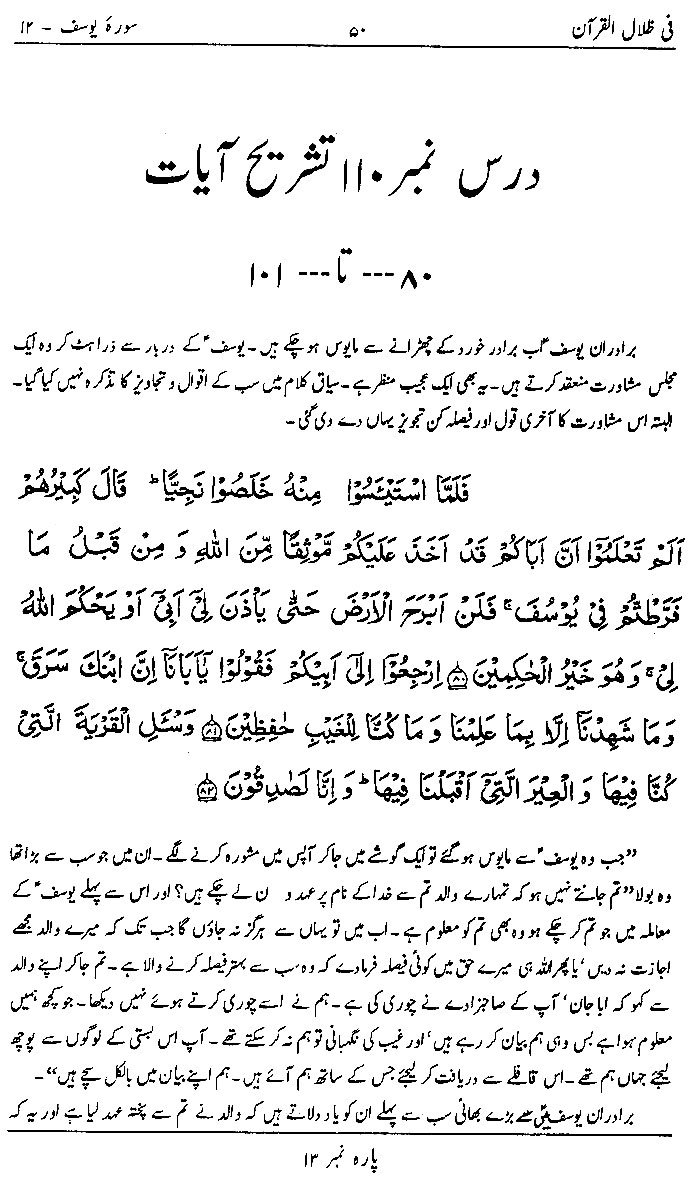 فی ظلال القرآن ۵۰ سورۂ یوسف - ۱۲
درس نمبر ۱۱۰ تشریح آیات
۸۰ --- تا --- ۱۰۱
برادران یوسفؑ اب برادر خورد کے چھڑانے سے مایوس ہو چکے ہیں۔ یوسفؑ کے دربار سے ذرا ہٹ کر وہ ایک
مجلس مشاورت منعقد کرتے ہیں۔ یہ بھی ایک عجیب منظر ہے۔ سیاق کلام میں سب کے اقوال و تجاویز کا تذکرہ نہیں کیا گیا۔
البتہ اس مشاورت کا آخری قول اور فیصلہ کن تجویز یہاں دے دی گئی۔
فَلَمَّا اسْتَیْـَٔسُوْا مِنْهُ خَلَصُوْا نَجِیًّا ؕ قَالَ کَبِیْرُهُمْ
اَلَمْ تَعْلَمُوْۤا اَنَّ اَبَاکُمْ قَدْ اَخَذَ عَلَیْکُمْ مَّوْثِقًا مِّنَ اللهِ وَ مِنْ قَبْلُ مَا
فَرَّطْتُّمْ فِیْ یُوْسُفَ ۚ فَلَنْ اَبْرَحَ الْاَرْضَ حَتّٰی یَاْذَنَ لِیْۤ اَبِیْۤ اَوْ یَحْکُمَ اللهُ
لِیْ ۚ وَ هُوَ خَیْرُ الْحٰکِمِیْنَ ﴿۸۰﴾ اِرْجِعُوْۤا اِلٰۤی اَبِیْکُمْ فَقُوْلُوْا یٰۤاَبَانَاۤ اِنَّ ابْنَكَ سَرَقَ ۚ
وَ مَا شَهِدْنَاۤ اِلَّا بِمَا عَلِمْنَا وَ مَا کُنَّا لِلْغَیْبِ حٰفِظِیْنَ ﴿۸۱﴾ وَسْـَٔلِ الْقَرْیَةَ الَّتِیْ
کُنَّا فِیْهَا وَ الْعِیْرَ الَّتِیْۤ اَقْبَلْنَا فِیْهَا ؕ وَ اِنَّا لَصٰدِقُوْنَ ﴿۸۲﴾
”جب وہ یوسفؑ سے مایوس ہو گئے تو ایک گوشے میں جا کر آپس میں مشورہ کرنے لگے۔ ان میں جو سب سے بڑا تھا
وہ بولا ”تم جانتے نہیں ہو کہ تمہارے والد تم سے خدا کے نام پر عہد و ن لے چکے ہیں؟ اور اس سے پہلے یوسفؑ کے
معاملہ میں جو تم کر چکے ہو وہ بھی تم کو معلوم ہے۔ اب میں تو یہاں سے ہرگز نہ جاؤں گا جب تک کہ میرے والد مجھے
اجازت نہ دیں‘ یا پھر اللہ ہی میرے حق میں کوئی فیصلہ فرما دے کہ وہ سب سے بہتر فیصلہ کرنے والا ہے۔ تم جا کر اپنے والد
سے کہو کہ ابا جان‘ آپ کے صاحبزادے نے چوری کی ہے۔ ہم نے اسے چوری کرتے ہوئے نہیں دیکھا۔ جو کچھ ہمیں
معلوم ہوا ہے بس وہی ہم بیان کر رہے ہیں‘ اور غیب کی نگہبانی تو ہم نہ کر سکتے تھے۔ آپ اس بستی کے لوگوں سے پوچھ
لیجئے جہاں ہم تھے۔ اس قافلے سے دریافت کر لیجئے جس کے ساتھ ہم آئے ہیں۔ ہم اپنے بیان میں بالکل سچے ہیں“۔
برادران یوسفؑ میں سے بڑے بھائی سب سے پہلے ان کو یاد دلاتے ہیں کہ والد نے تم سے پختہ عہد لیا ہے اور یہ کہ
پارہ نمبر ۱۳